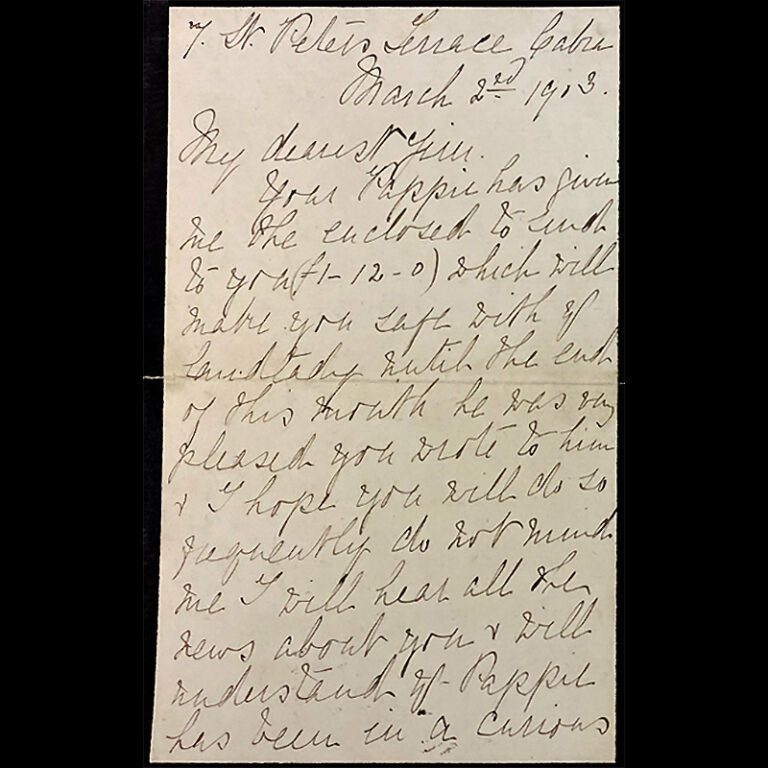 7. St. Peters Terrace Cabra
March 2nd 1903.
My dearest Jim.
Your Pappie has given
me the enclosed to send
to you (£1-12-0) which will
make you safe with yr
landlady until the end
of this month he was very
pleased you wrote to him
& I hope you will do so
frequently do not mind
me I will hear all the
news about you & will
understand yr Pappie
has been in a curious